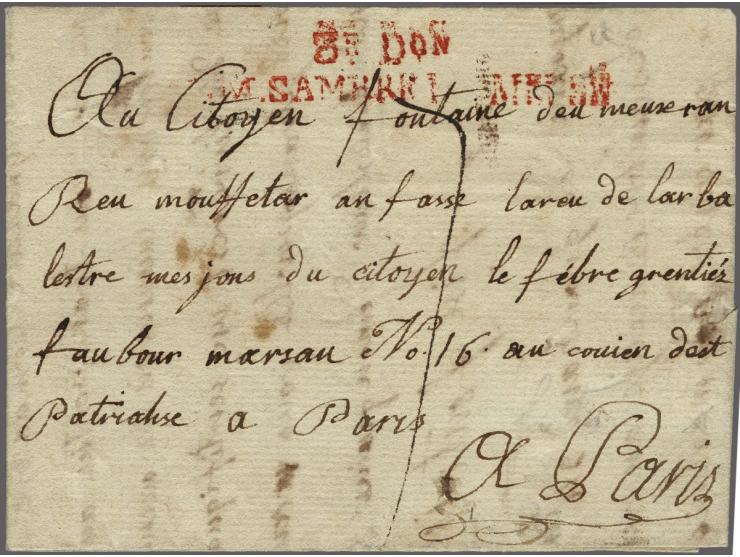 3E DON
M.SAMBRE
Au Citoyen fontaine deumeuran
Reu mouffetar an fasse lareu de larba
lestre mesjons du citoyen le fébre grentiéz
faubour marsau No. 16. au couien dest
Patriahse a Paris
A Paris